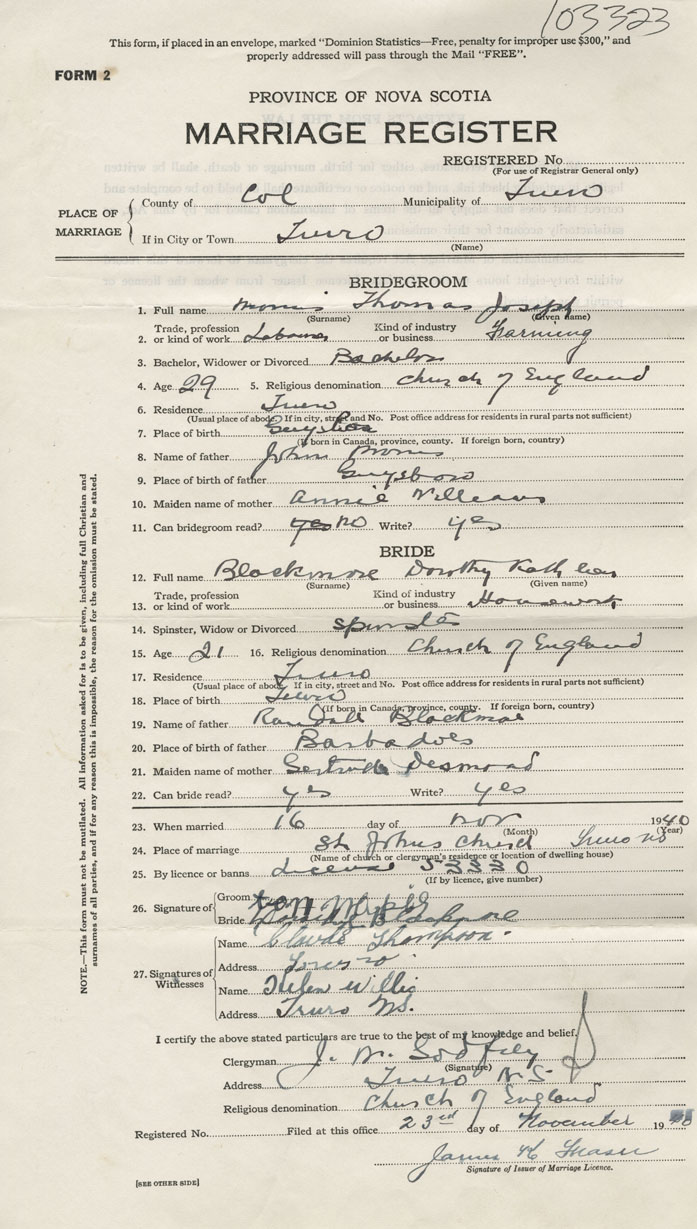 103323
This form, if placed in an envelope, marked "Dominion Statistics—Free, penalty for improper use $300," and
properly addressed will pass through the Mail "FREE".
FORM 2
PROVINCE OF NOVA SCOTIA
MARRIAGE REGISTER
REGISTERED No.
(For use of Registrar General only)
PLACE OF MARRIAGE
County of Col Municipality of Truro
If in City or Town Truro
(Name)
BRIDEGROOM
1. Full name Morris Thomas Joseph
(Surname) (Given name)
2. Trade, profession or kind of work Labourer Kind of industry or business Farming
3. Bachelor, Widower or Divorced Bachelor
4. Age 29 5. Religious denomination Church of England
6. Residence Truro
(Usual place of abode. If in city, street and No. Post office address for residents in rural parts not sufficient)
7. Place of birth
(If born in Canada, province, county. If foreign born, country)
8. Name of father John Morris
9. Place of birth of father Guysboro
10. Maiden name of mother Annie Williams
11. Can bridegroom read? yes no Write? yes
BRIDE
12. Full name Blackmore Dorothy Kathleen
(Surname) (Given name)
13. Trade, profession or kind of work Kind of industry or business Housework
14. Spinster, Widow or Divorced Spinster
15. Age 21 16. Religious denomination Church of England
17. Residence Truro
(Usual place of abode. If in city, street and No. Post office address for residents in rural parts not sufficient)
18. Place of birth Truro
(If born in Canada, province, county. If foreign born, country)
19. Name of father Randall Blackmore
20. Place of birth of father Barbadoes
21. Maiden name of mother Gertrude Desmond
22. Can bride read? yes Write? yes
23. When married 16 day of Nov 1940
(Month) (Year)
24. Place of marriage St Johns Church Truro NS
(Name of church or clergyman's residence or location of dwelling house)
25. By licence or banns License 53330
(If by licence, give number)
26. Signature of
Groom
Bride Blackmore
27. Signatures of Witnesses
Name Claude Thompson.
Address Truro
Name Helen Willis
Address Truro NS.
I certify the above stated particulars are true to the best of my knowledge and belief.
Clergyman J. M.
(Signature)
Address Truro N.S.
Religious denomination Church of England
Registered No. Filed at this office 23rd day of November 19
James
Signature of Issuer of Marriage Licence.
[SEE OTHER SIDE]
NOTE.—This form must not be mutilated. All information asked for is to be given, including full Christian and
surnames of all parties, and if for any reason this is impossible, the reason for the omission must be stated.